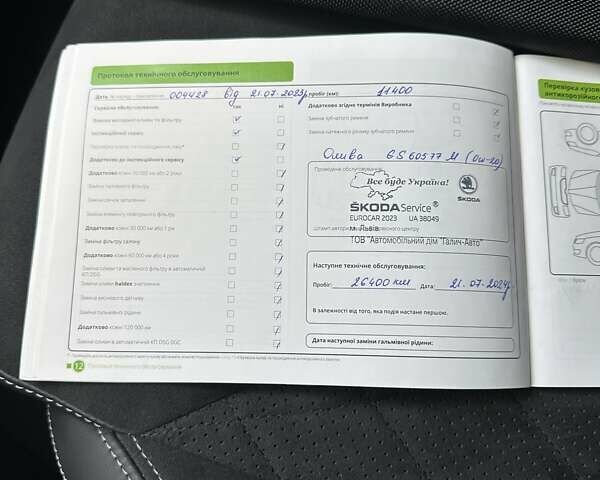 Протокол технічного обслуговування
Дата 004428 від 21.07.2023р пробіг (км): 11400
Сервісне обслуговування: Так Ні
Заміна моторної оливи та фільтру
Інспекційний сервіс
Додатково до інспекційного сервісу
Додатково кожні 30 000 км або 2 роки
Заміна паливного фільтру
Заміна свічок запалення
Заміна елементу повітряного фільтру
Додатково кожні 30 000 км або
Заміна фільтру салону
Додатково кожні 60 000 км або 4 роки
Заміна оливи та масляного фільтру в автоматичній КП/DSG
Заміна оливи haldex зчеплення
Заміна гальмівної рідини
Додатково кожні 120 000 км
Заміна оливи в автоматичній КП DSG
12 Протокол технічного обслуговування
Додатково згідно термінів Виробника
Заміна зубчатого ременя
Заміна натяжного ролику зубчатого ременя
Олива GS60577M (0w-20)
Проведене обслуговування:
Все буде Україна!
ŠKODA Service®
ŠKODA
EUROCAR 2023 UA 38049
м. Львів
ТОВ "Автомобільний дім "Галич-Авто"
Наступне технічне обслуговування:
Пробіг: 26400 км Дата: 21.07.2024р
В залежності від того, яка подія настане першою.
Дата наступної заміни гальмівної рідини:
Перевірка кузо
антикорозійного